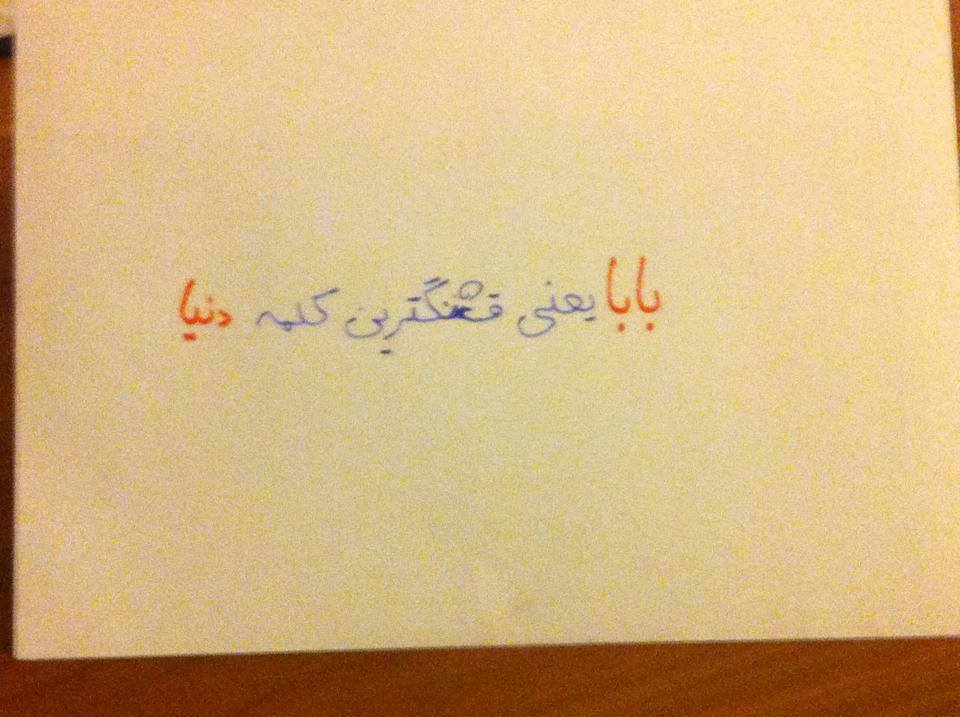 بابا یعنی قشنگترین کلمه دنیا